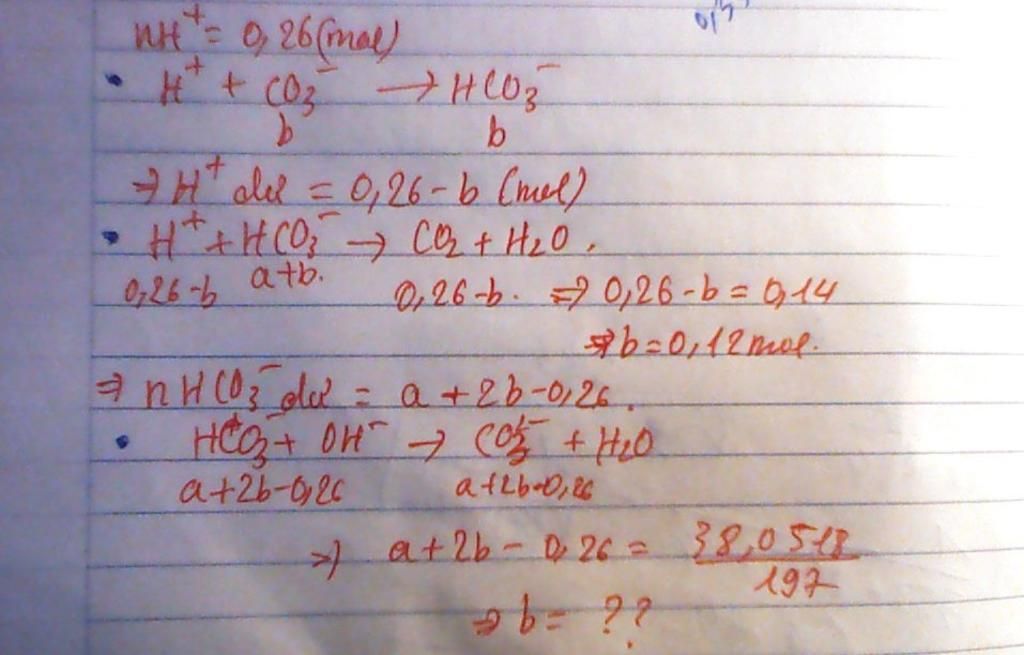 nH⁺ = 0,26(mol)
• H⁺ + CO₃⁻ → HCO₃⁻
b b
⇒ H⁺ dư = 0,26 - b (mol)
• H⁺ + HCO₃⁻ → CO₂ + H₂O.
0,26-b a+b. 0,26-b. ⇒ 0,26 - b = 0,14
⇒ b = 0,12 mol.
⇒ nHCO₃⁻ dư = a + 2b - 0,26.
• HCO₃⁻ + OH⁻ → CO₃²⁻ + H₂O
a+2b-0,26 a+2b-0,26
⇒ a + 2b - 0,26 = 38,0518/197
⇒ b = ??